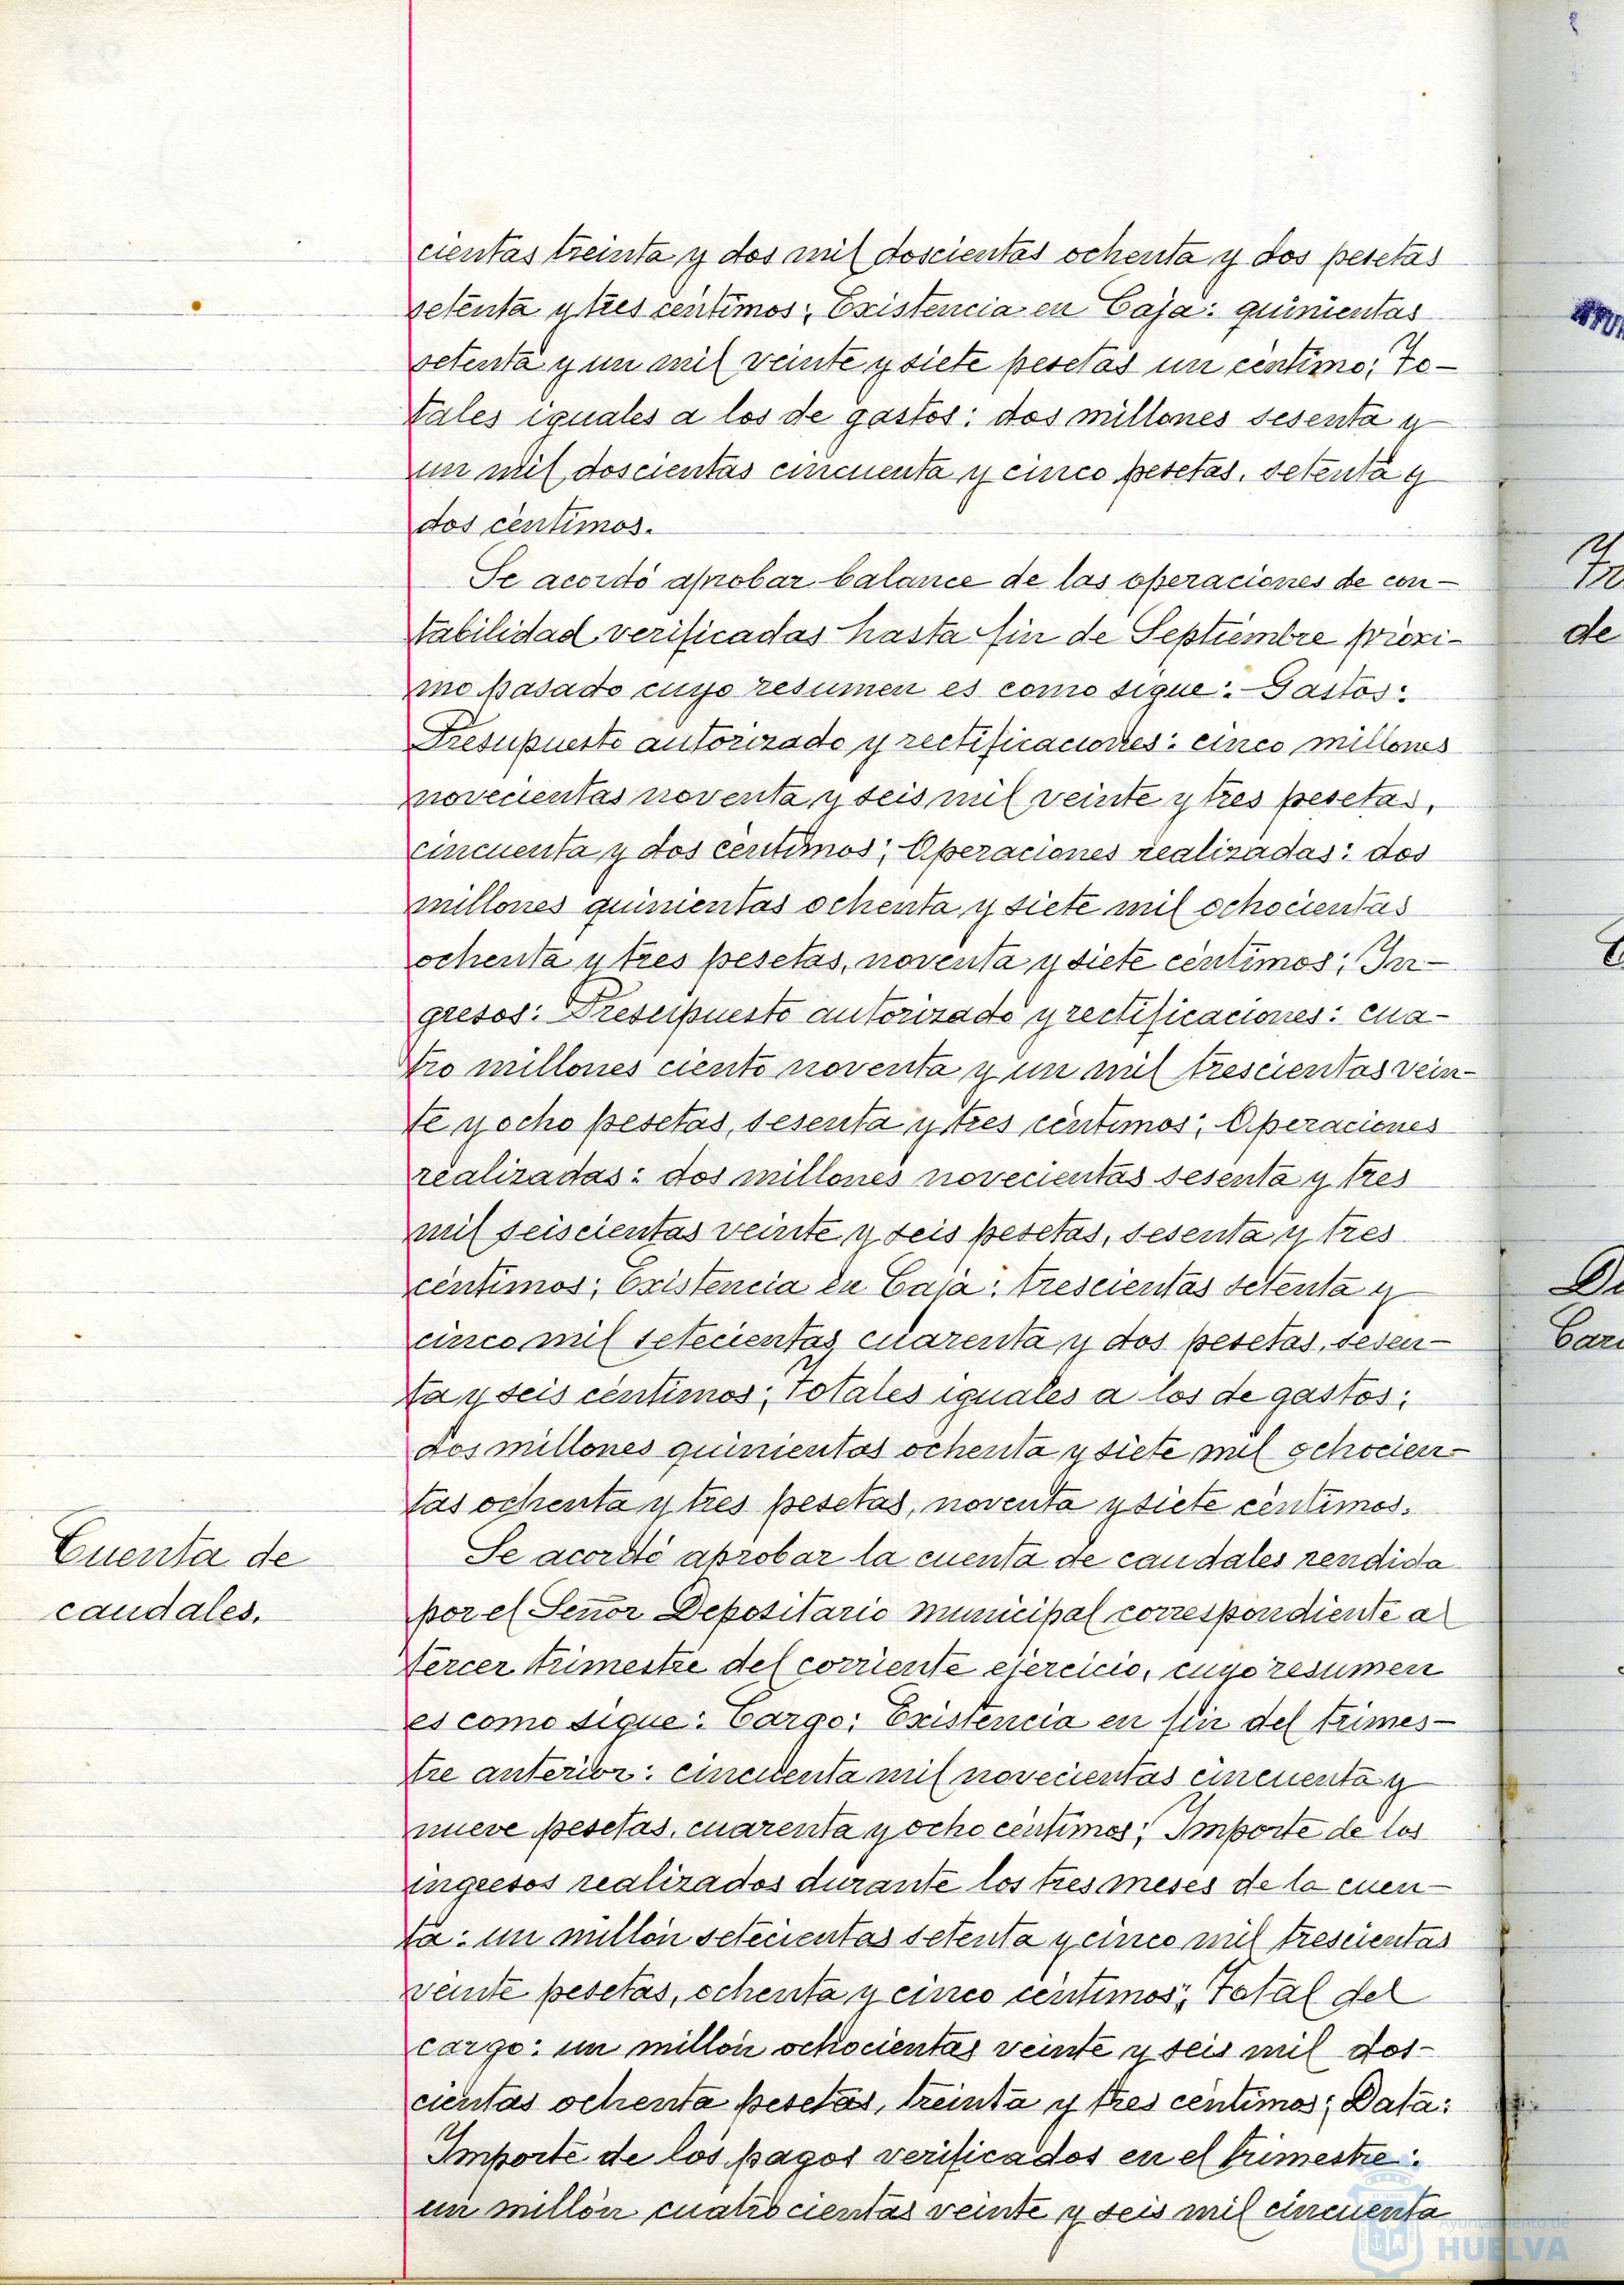 cientas treinta y dos mil doscientas ochenta y dos pesetas
setenta y tres céntimos; Existencia en Caja: quinientas
setenta y un mil veinte y siete pesetas un céntimo; To-
tales iguales a los de gastos: dos millones sesenta y
un mil doscientas cincuenta y cinco pesetas, setenta y
dos céntimos.
Se acordó aprobar balance de las operaciones de con-
tabilidad verificadas hasta fin de Septiembre próxi-
mo pasado cuyo resumen es como sigue: Gastos:
Presupuesto autorizado y rectificaciones: cinco millones
novecientas noventa y seis mil veinte y tres pesetas,
cincuenta y dos céntimos; Operaciones realizadas: dos
millones quinientas ochenta y siete mil ochocientas
ochenta y tres pesetas, noventa y siete céntimos; In-
gresos: Presupuesto autorizado y rectificaciones: cua-
tro millones ciento noventa y un mil trescientas vein-
te y ocho pesetas, sesenta y tres céntimos; Operaciones
realizadas: dos millones novecientas sesenta y tres
mil seiscientas veinte y seis pesetas, sesenta y tres
céntimos; Existencia en Caja: trescientas setenta y
cinco mil setecientas cuarenta y dos pesetas, sesen-
ta y seis céntimos; Totales iguales a los de gastos:
dos millones quinientas ochenta y siete mil ochocien-
tas ochenta y tres pesetas, noventa y siete céntimos.
Cuenta de
caudales.
Se acordó aprobar la cuenta de caudales rendida
por el Señor Depositario municipal correspondiente al
tercer trimestre del corriente ejercicio, cuyo resumen
es como sigue: Cargo: Existencia en fin del trimes-
tre anterior: cincuenta mil novecientas cincuenta y
nueve pesetas, cuarenta y ocho céntimos; Importe de los
ingresos realizados durante los tres meses de la cuen-
ta: un millón setecientas setenta y cinco mil trescientas
veinte pesetas, ochenta y cinco céntimos; Total del
cargo: un millón ochocientas veinte y seis mil dos-
cientas ochenta pesetas, treinta y tres céntimos; Data:
Importe de los pagos verificados en el trimestre:
un millón cuatrocientas veinte y seis mil cincuenta
de
Ayuntamiento de
HUELVA